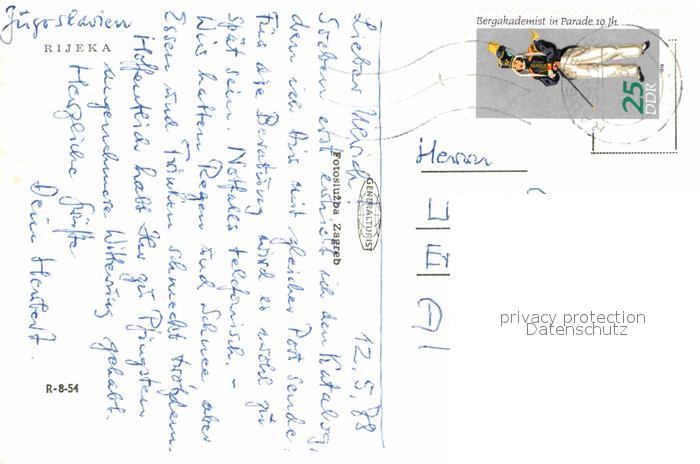 Jugoslavien
RIJEKA
12.5.78
Lieber Ulrich!
Soeben erst erhielt ich den Katalog,
den ich Dir mit gleicher Post sende.
Für die Beratung wird es wohl zu
spät sein. Notfalls telefonisch. –
Wir hatten Regen und Schnee aber
Essen und Trinken schmeckt trotzdem.
Hoffentlich habt Ihr zu Pfingsten
angenehmere Witterung gehabt.
Herzliche Grüße
Dein Herbert.
R-8-54
Fotoslužba Zagreb
GENERALTURIST
Bergakademist in Parade, 19. Jh.
25
DDR
Herrn
privacy protection
Datenschutz